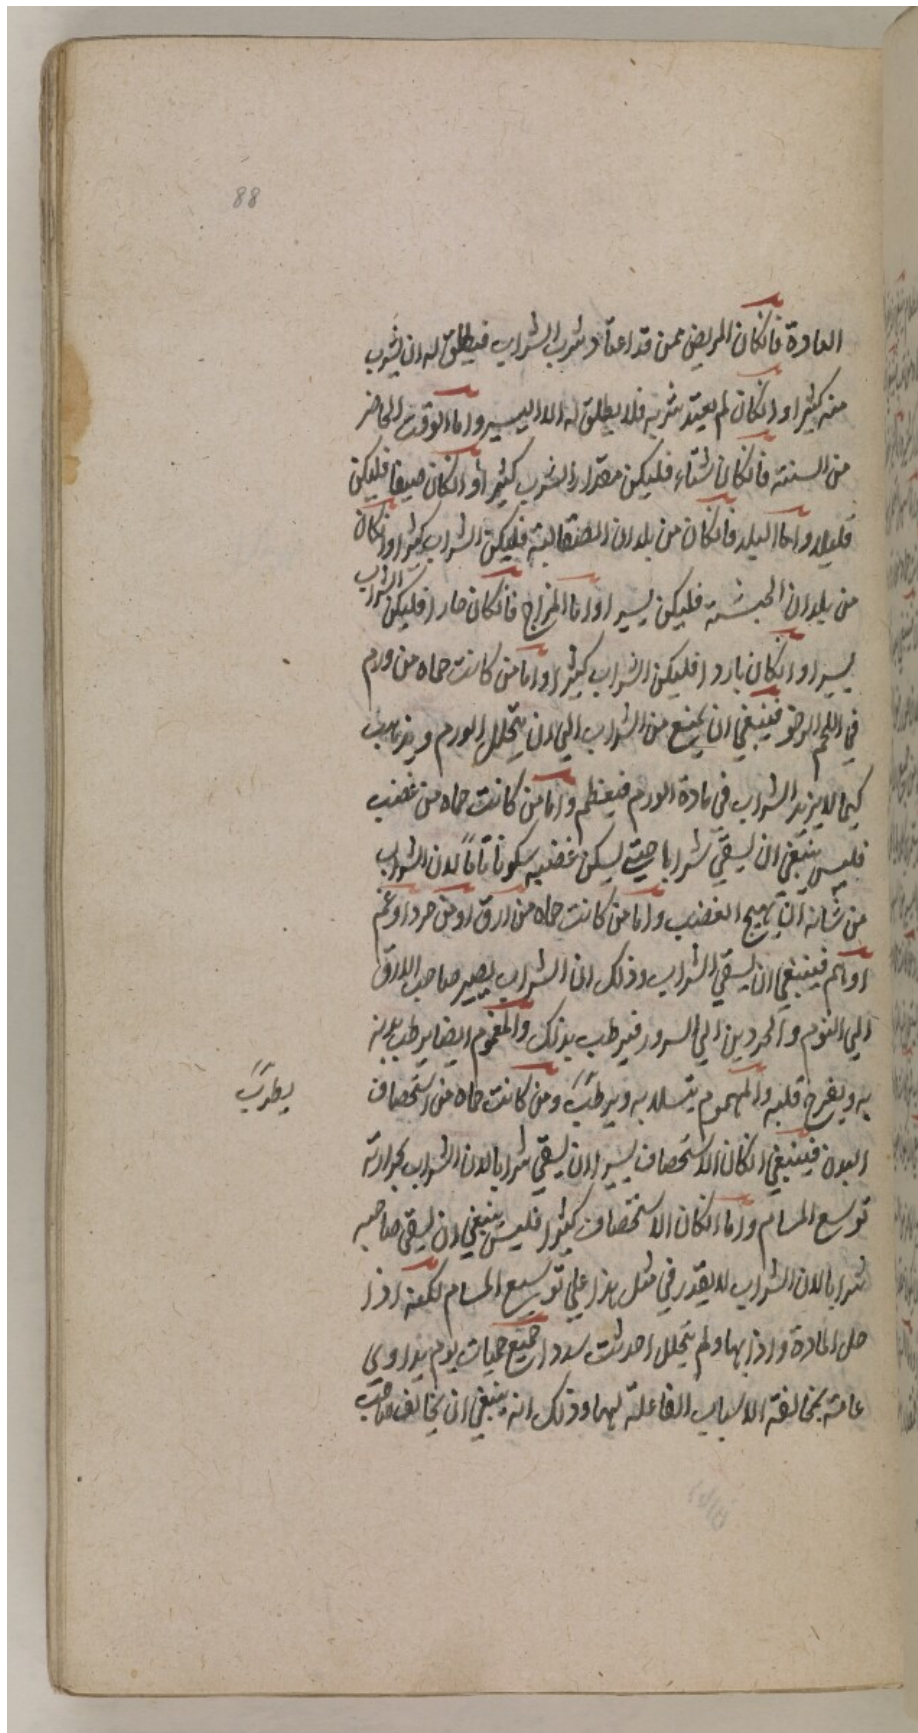 88
العادة فانكان المريض ممن قد اعتاد شرب الشراب فيطلق له ان يشرب
منه كثيرا وانكان لم يعتد شربه فلا يطلق له الا اليسير واما الوقت الحاضر
من السنة فانكان شتاء فليكن مقدار الشرب كثيرا وانكان صيفا فليكن
قليلا واما البلد فانكان من بلدان الصقالبة فليكن الشراب كثيرا وانكان
من بلدان الحبشة فليكن يسيرا واما المزاج فانكان حارا فليكن الشراب
يسيرا وانكان باردا فليكن الشراب كثيرا واما من كانت حماه من ورم
في اللحم الرخو فينبغي ان يمنع من الشراب الي ان يتحلل الورم ويذهب
كيما لا يزيد الشراب في مادة الورم فيعظم واما من كانت حماه من غضب
فليس ينبغي ان يسقي شرابا حتي يسكن غضبه سكونا تاما لان الشراب
من شانه ان يهيج الغضب واما من كانت حماه من ارق او من حرد او غم
او هم فينبغي ان يسقي الشراب وذلك ان الشراب يصير صاحب الارق
الي النوم والحردين الي السرور فيرطب بذلك والمغموم ايضا يرطب بدنه
به ويفرح قلبه والمهموم يتسلا به ويرطب ومن كانت حماه من استحصاف
يطرب
البدن فينبغي انكان الاستحصاف يسيرا ان يسقي شرابا لان الشراب بحرارته
توسع المسام واما انكان الاستحصاف كثيرا فليس ينبغي ان يسقي صاحبه
شرابا لان الشراب لا يقدر في مثل هذا علي توسيع المسام لكنه اذا
حل المادة واذابها ولم يتحلل احدثت سددا جميع حميات يوم يداوي
عامته بمخالفة الاسباب الفاعلة لها وذلك انه ينبغي ان يخالف صاحب